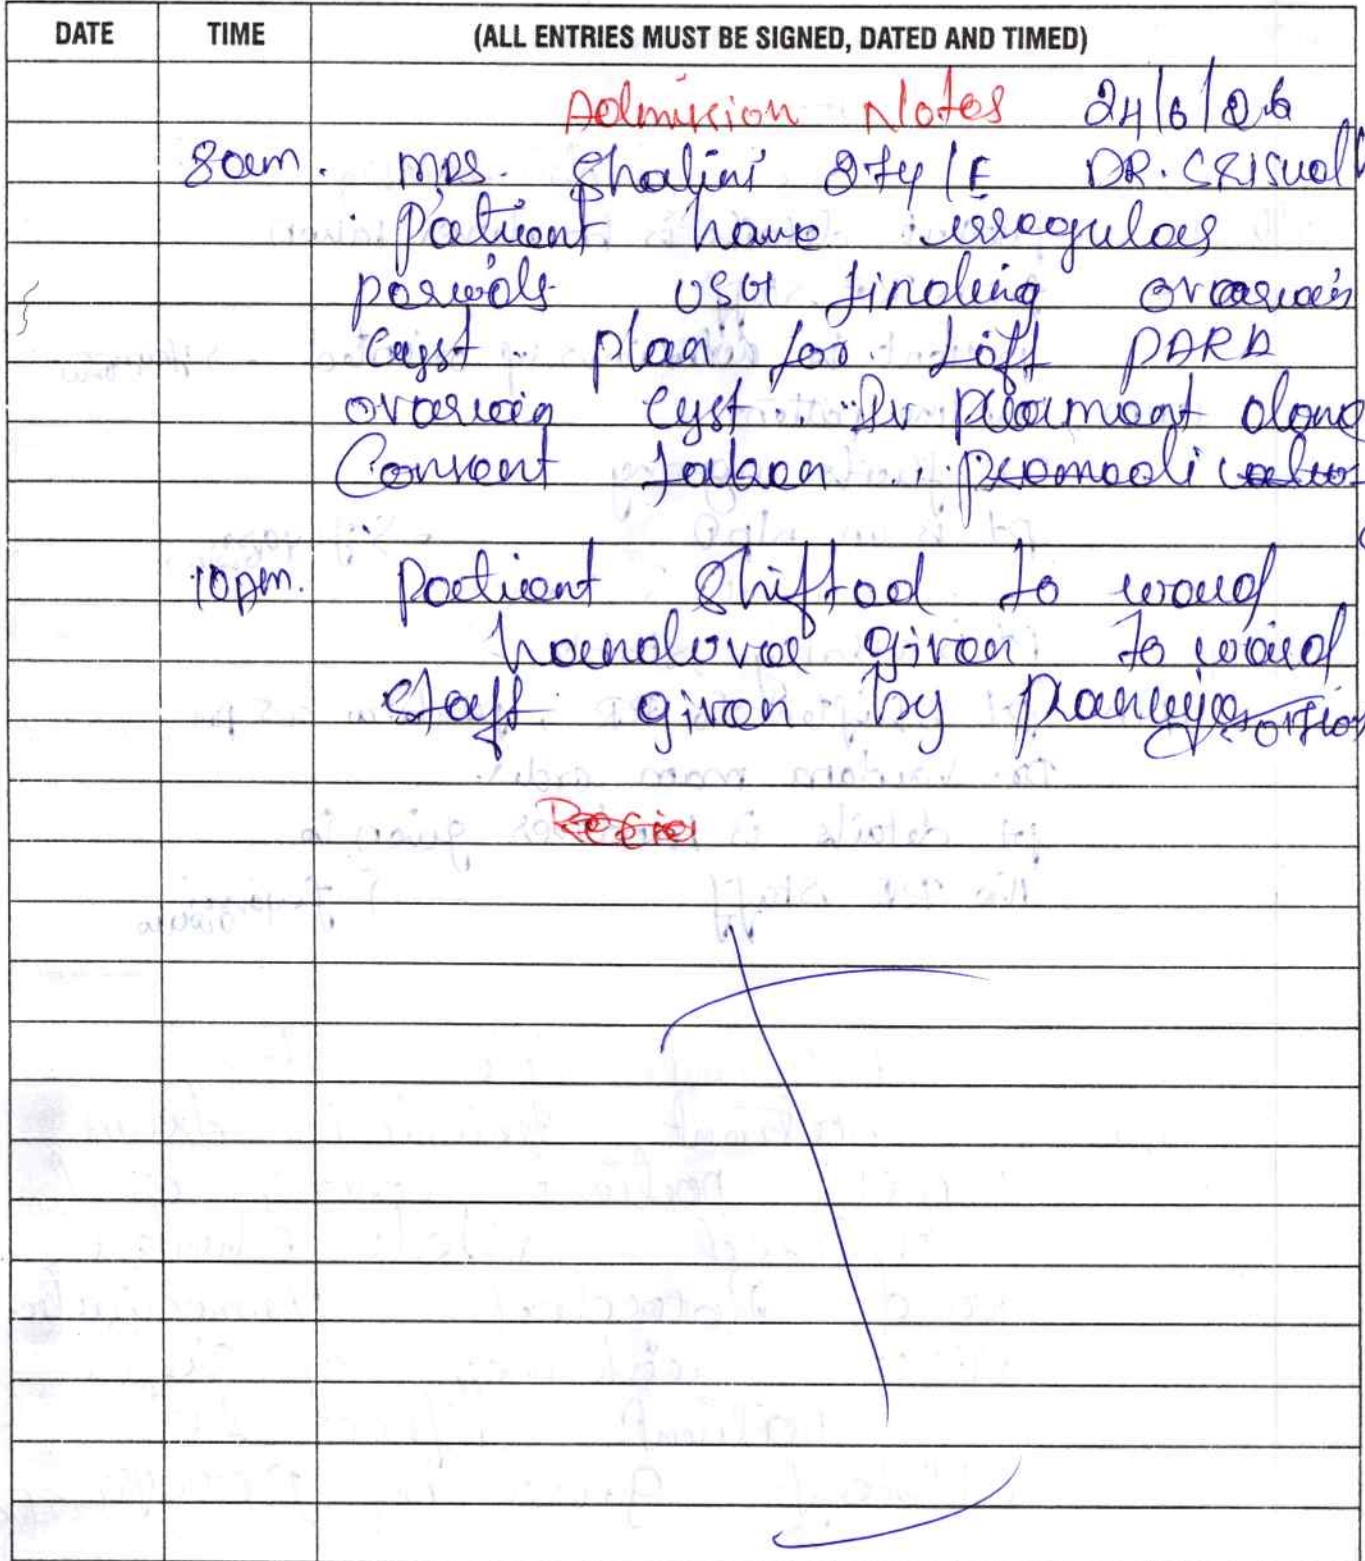 DATE TIME (ALL ENTRIES MUST BE SIGNED, DATED AND TIMED)
Admission Notes 24/6/26
8am. MRS. Shalini 27y/F DR.
Patient have irregular
periods USG finding ovarian
cyst. plan for Left PARA
ovarian cyst. IV
Consent taken.
10pm. Patient Shifted to ward
handover given to ward
staff given by